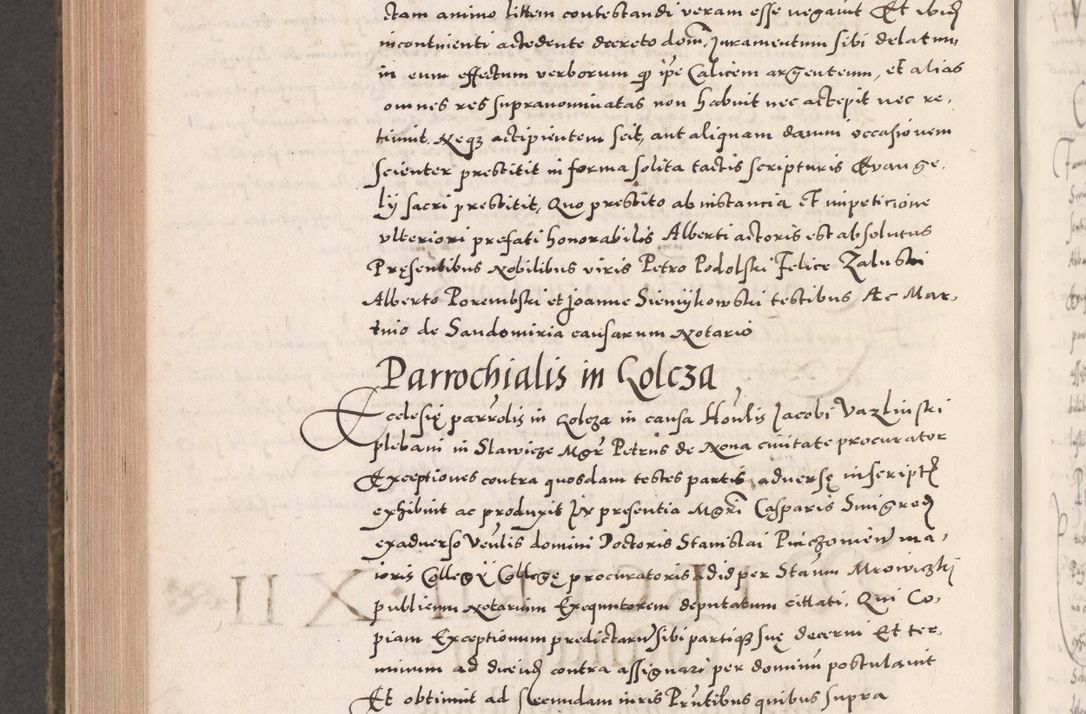 ctam animo littem contestandi veram esse negavit Et ibid
incontinenti accedente decreto dom. Juramentum sibi delatum
in eum effectum verborum qd ipse Calicem argenteum, et alias
omnes res supranominatas non habuit nec accepit nec re,
tinuit, Neqz accipientem scit, aut aliquam damni occasionem
scienter prestitit in forma solita tactis scripturis Evange,
lij sacri prestitit, Quo prestito ab instancia et impeticione
ulteriori prefati honorabilis Alberti actoris est absolutus
Presentibus Nobilibus viris Petro Podolski Felice Zaluski
Alberto Porembski et Joanne Siemijkowski testibus Ac Mar,
tino de Sandomiria causarum Notario
Parrochialis in Colcza
Ecclesię parrolis in Colcza in causa Honlis Jacobi Vazlinski
plebani in Slawicze Mgr Petrus de Nova civitate procurator
Exceptiones contra quosdam testes partis adversę inscript
exhibuit ac produxit In presentia Mgri Casparis Smigred
ex adverso Venlis domini Doctoris Stanislai ma,
ioris Collegij Collegę procuratoris ad id per Stanm Mrowiczki
publicum Notarium Exequutorem deputatum cittati, Qui Co,
piam Exceptionum predictarum sibi partiqz suę decerni Et ter,
minum ad dicend contra assignari per dominum postulavit
Et obtinuit ad secundam iuris Prntibus quibus supra